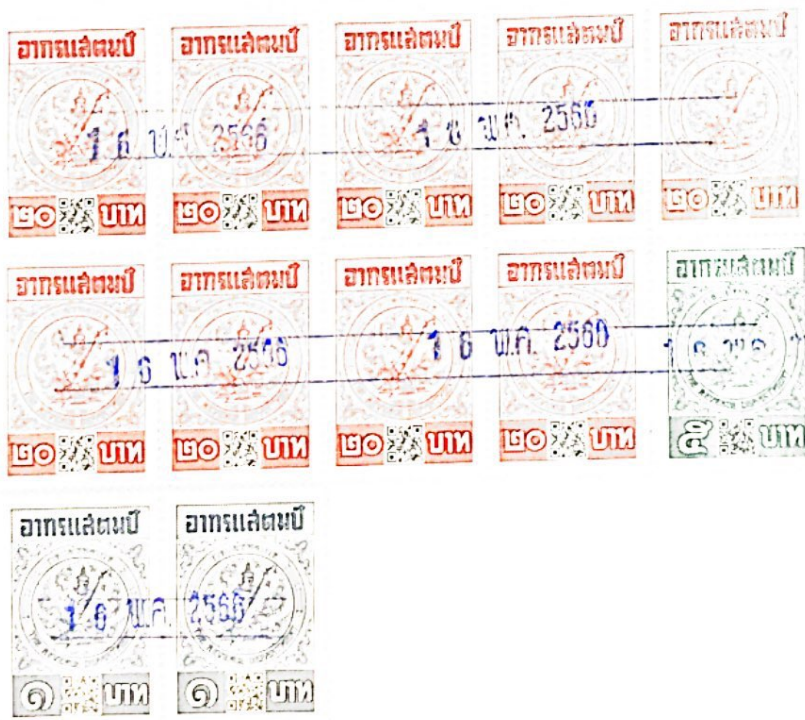 อากรแสตมป์ อากรแสตมป์ อากรแสตมป์ อากรแสตมป์ อากรแสตมป์
1 6 พ.ค. 2566 1 6 พ.ค. 2566
๒๐ บาท ๒๐ บาท ๒๐ บาท ๒๐ บาท ๒๐ บาท
อากรแสตมป์ อากรแสตมป์ อากรแสตมป์ อากรแสตมป์ อากรแสตมป์
1 6 พ.ค. 2566 1 6 พ.ค. 2566 1 6 พ.ค.
๒๐ บาท ๒๐ บาท ๒๐ บาท ๒๐ บาท ๕ บาท
อากรแสตมป์ อากรแสตมป์
1 6 พ.ค. 2566
๑ บาท ๑ บาท